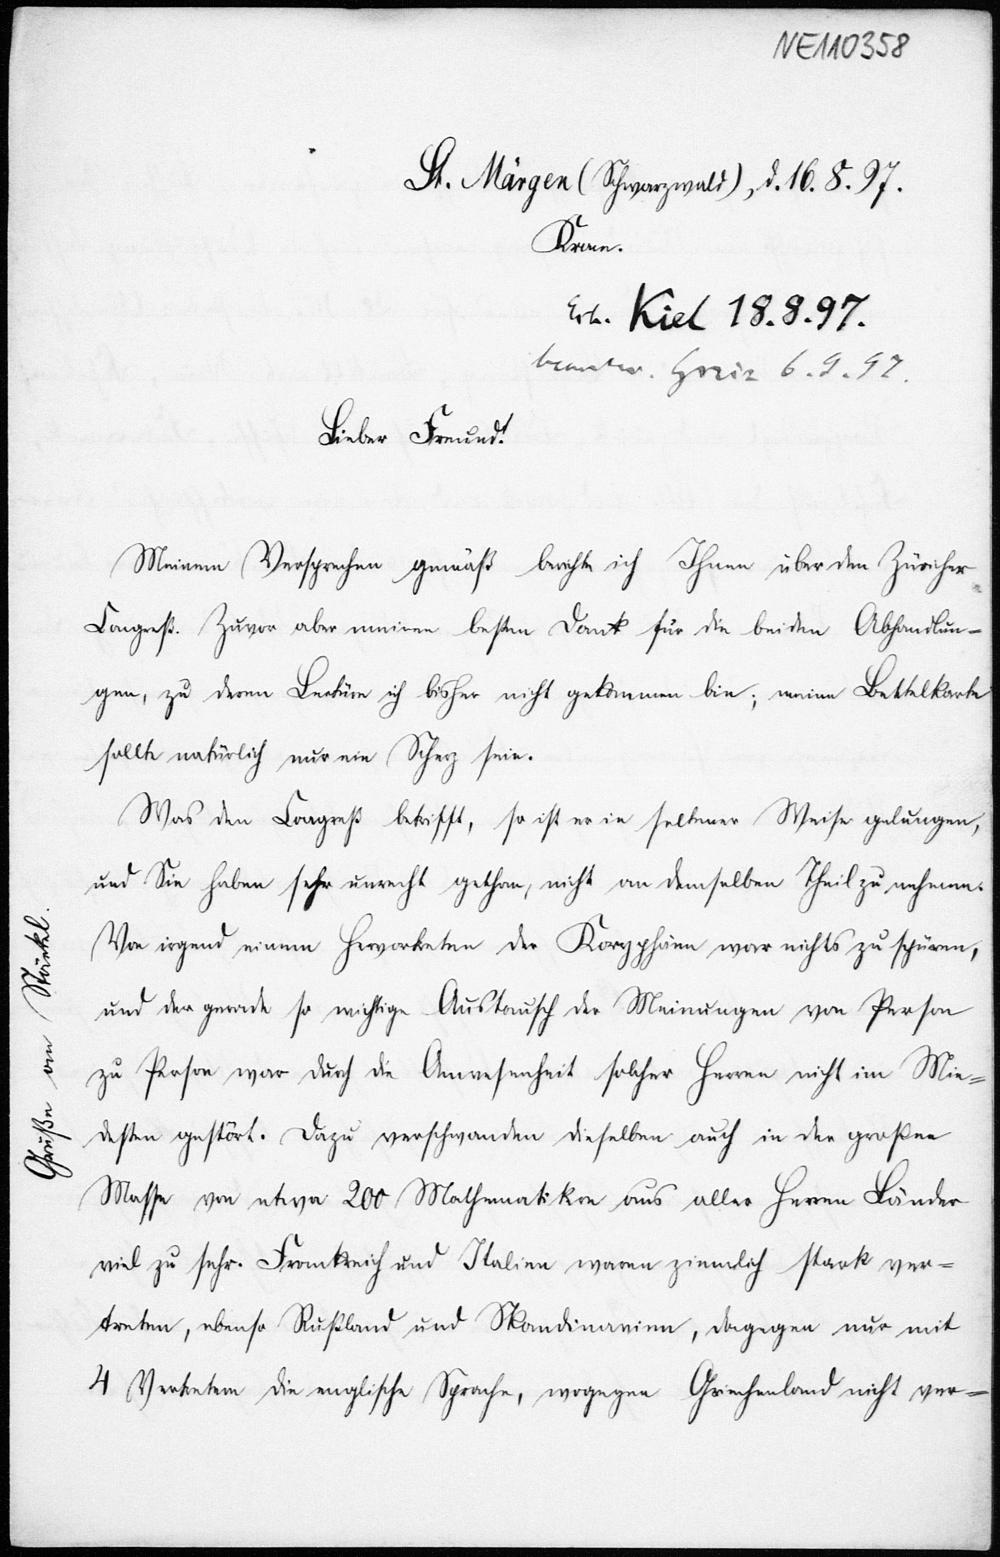 NE110358
St. Märgen (Schwarzwald), d. 16. 8. 97.
Krone.
Erh. Kiel 18.8.97.
beantw. Greiz 6.9.97.
Lieber Freund!
Meinem Versprechen gemäß berichte ich Ihnen über den Züricher
Congreß. Zuvor aber meinen besten Dank für die beiden Abhandlun=
gen, zu deren Lectüre ich bisher nicht gekommen bin; meine Bettelkarte
sollte natürlich nur ein Scherz sein.
Was den Congreß betrifft, so ist er in seltener Weise gelungen,
und Sie haben sehr unrecht gethan, nicht an demselben Theil zu nehmen.
Von irgend einem Hervortreten der Koryphäen war nichts zu spüren,
und der gerade so wichtige Austausch der Meinungen von Person
zu Person war durch die Anwesenheit solcher Herren nicht im Min=
desten gestört. Dazu verschwanden dieselben auch in der großen
Masse von etwa 200 Mathematikern aus aller Herren Länder
viel zu sehr. Frankreich und Italien waren ziemlich stark ver=
treten, ebenso Rußland und Skandinavien, dagegen nur mit
4 Vertretern die englische Sprache, wogegen Griechenland nicht ver=
Grüße an Stäckel.